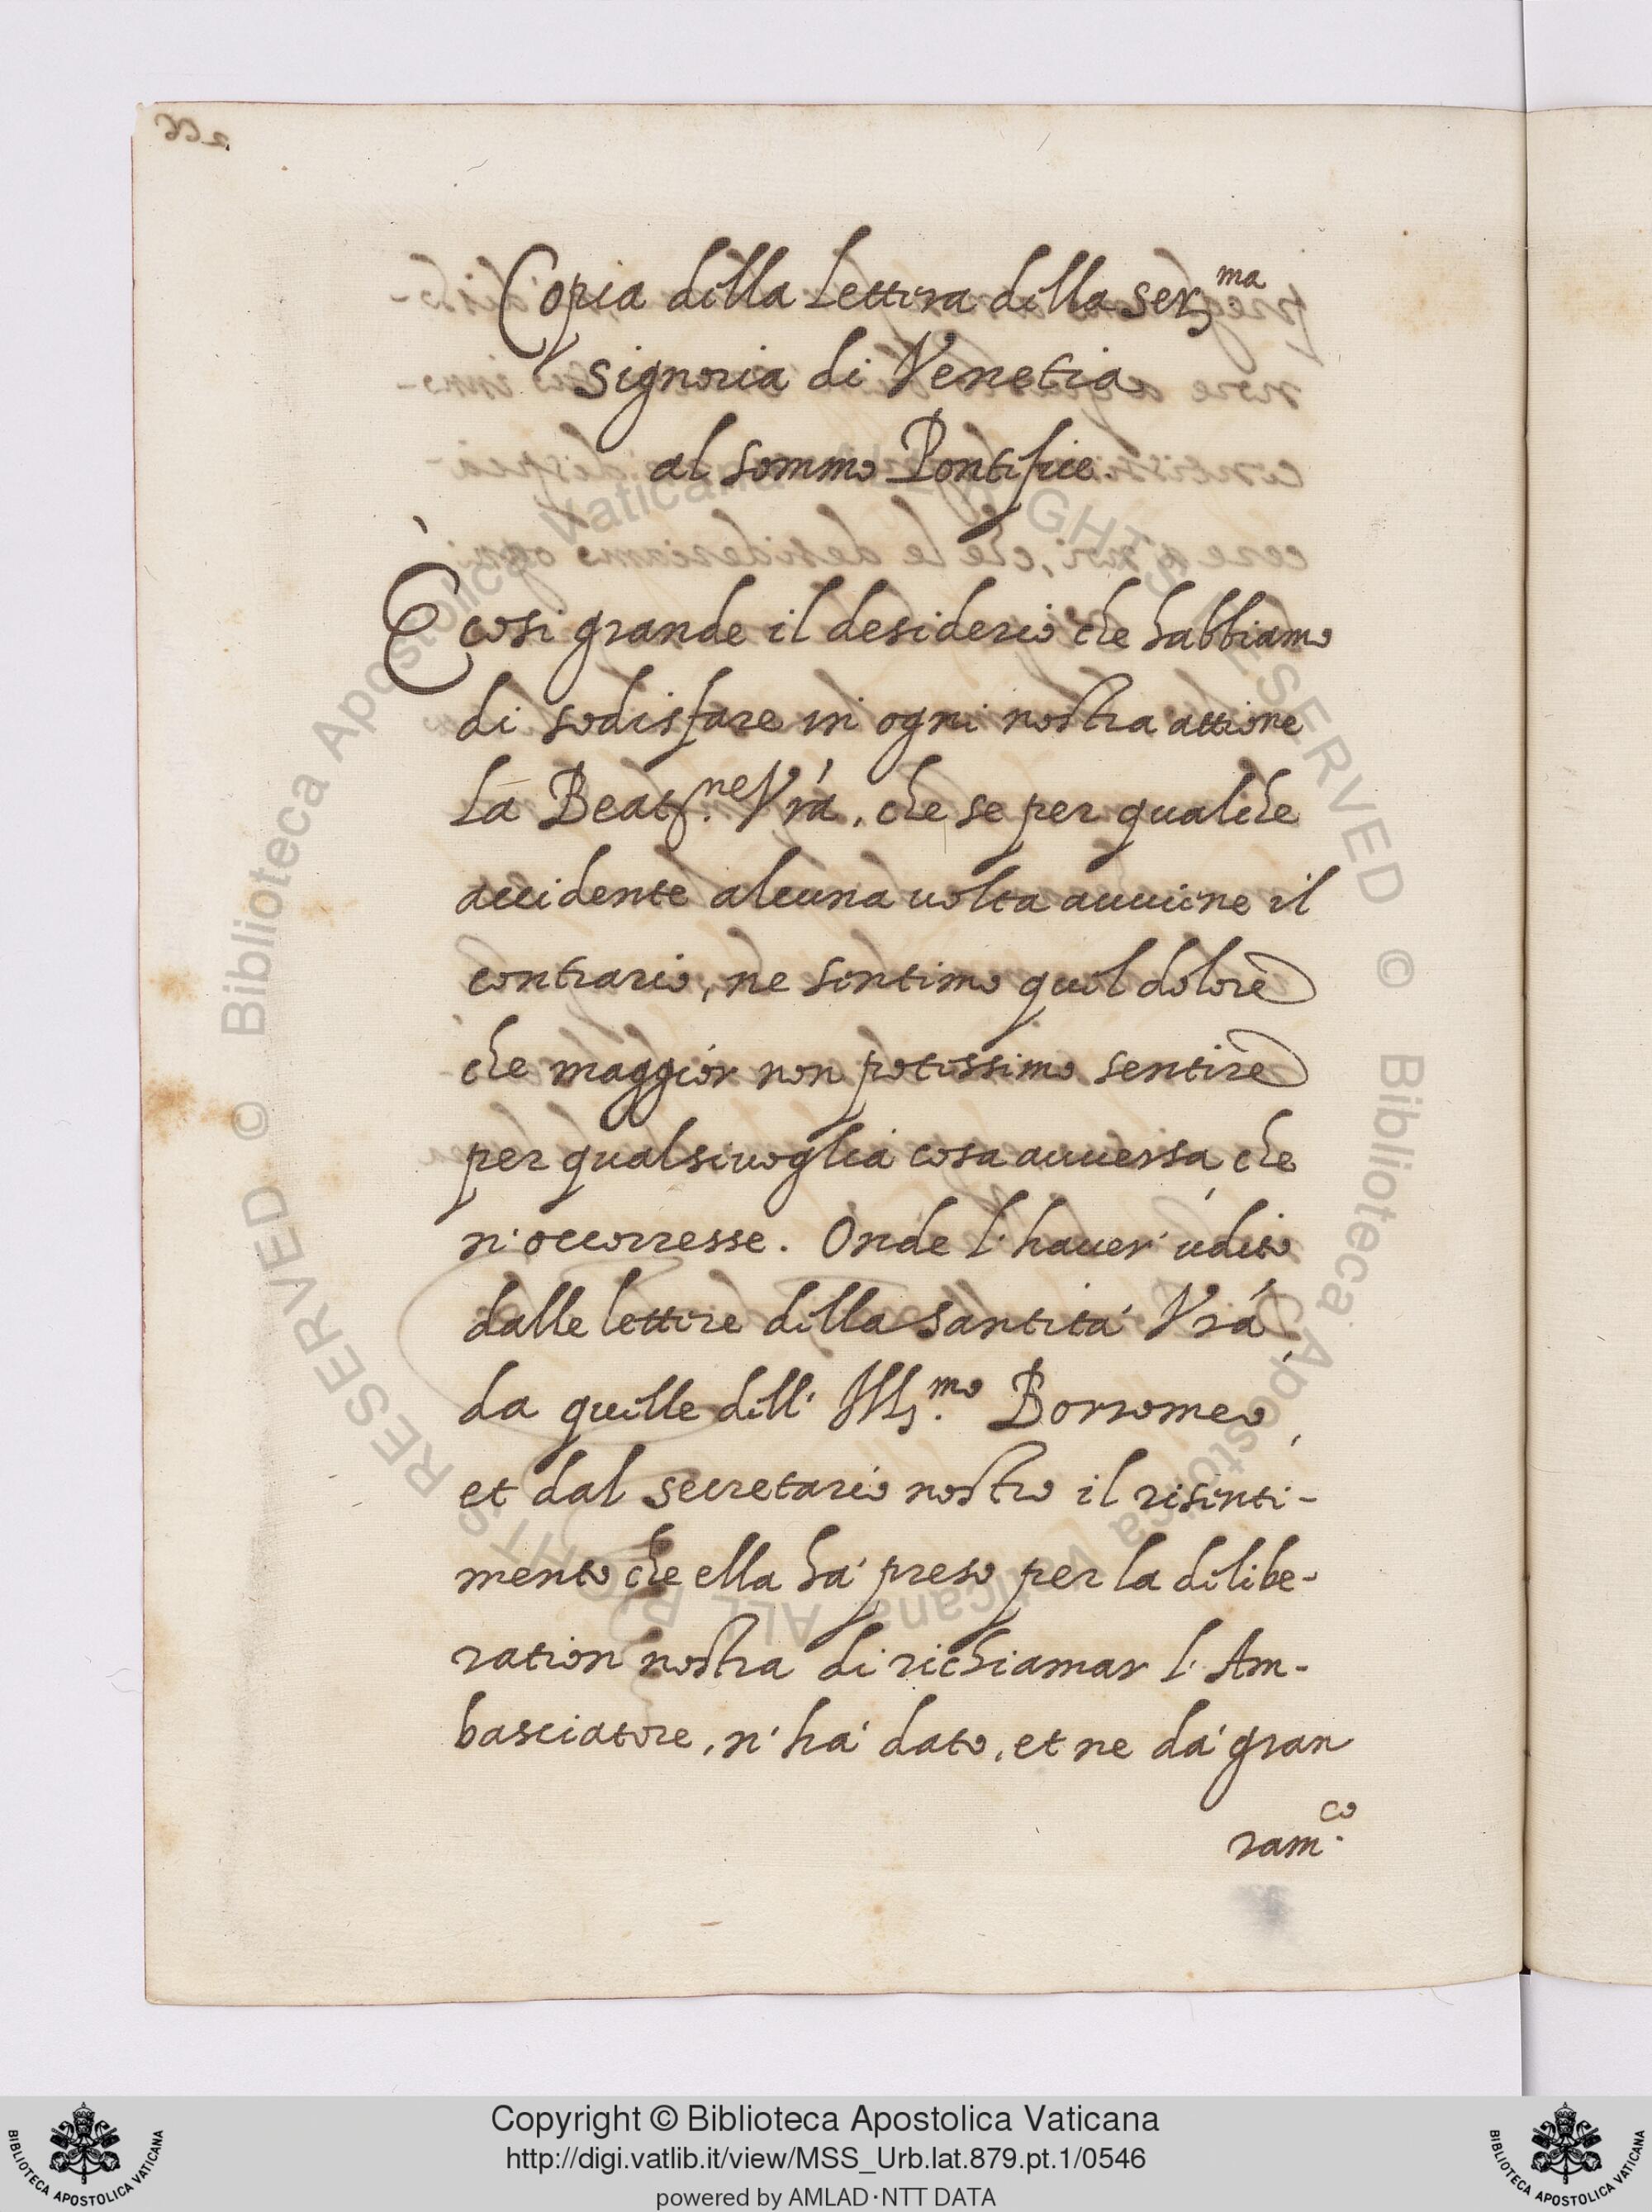 Copia della Lettera della Ser.ma
Signoria di Venetia
al sommo Pontifice.
È cosi grande il desiderio che habbiamo
di sodisfare in ogni nostra attione
La Beat.ne Vrá, che se per qualche
accidente alcuna uolta auuiene il
contrario, ne sentimo quel dolore
che maggior non potessimo sentire
per qualsiuoglia cosa auuersa, che
n'occorresse. Onde l'hauer' udito
dalle lettere della Santitá Vrá,
da quelle dell' Ill.mo Borromeo,
et dal secretario nostro il risenti-
mento che ella há preso per la delibe-
ration nostra di richiamar l'Am-
basciatore, n'há dato, et ne dá gran
ram.co
© Biblioteca Apostolica Vaticana ALL RIGHTS RESERVED
© Biblioteca Apostolica Vaticana ALL RIGHTS RESERVED
Copyright © Biblioteca Apostolica Vaticana
http://digi.vatlib.it/view/MSS_Urb.lat.879.pt.1/0546
powered by AMLAD·NTT DATA
BIBLIOTECA APOSTOLICA VATICANA
BIBLIOTECA APOSTOLICA VATICANA